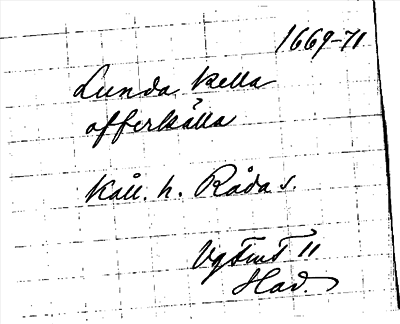 1669-71
Lunda kella
offerkälla
Kåll. h. Råda s.
Vg Fmt II
Had.